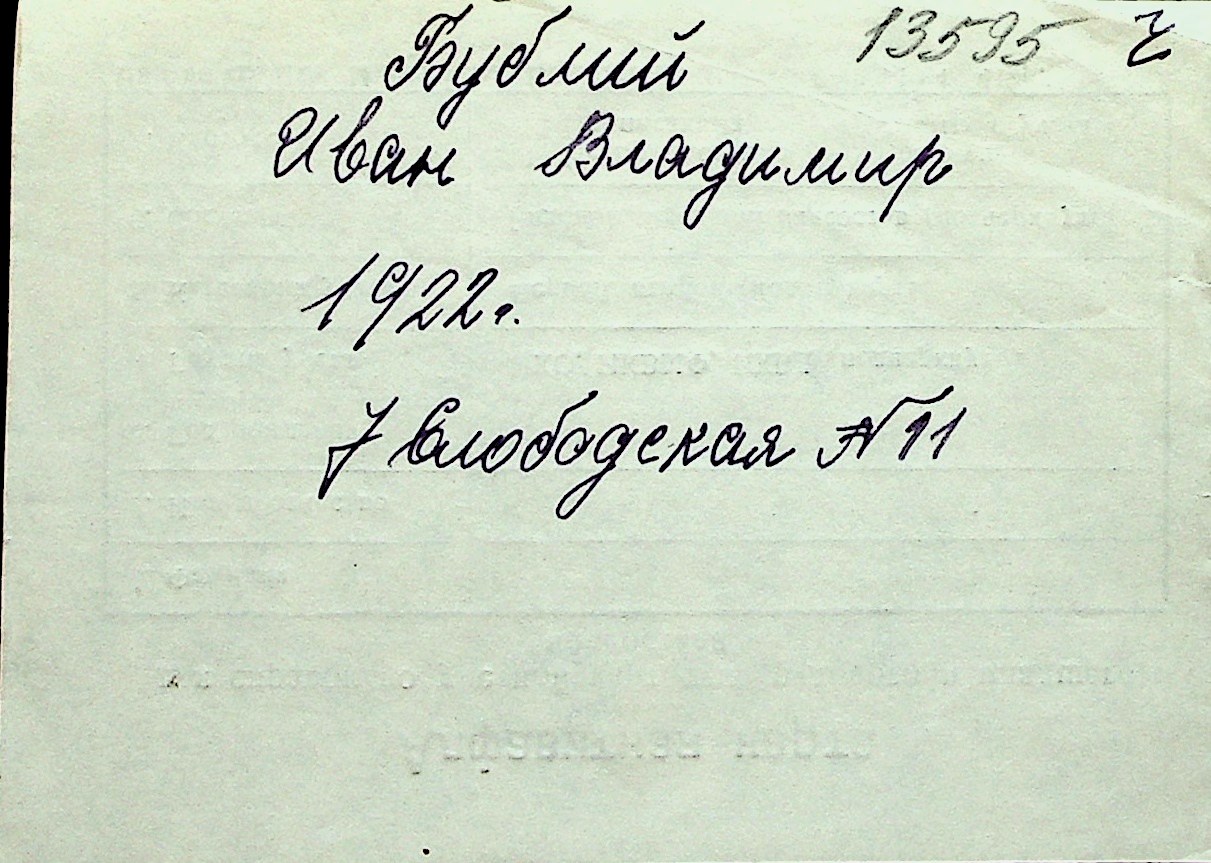 13595 ч
Бублий
Иван Владимир
1922г.
7 Слободская №11